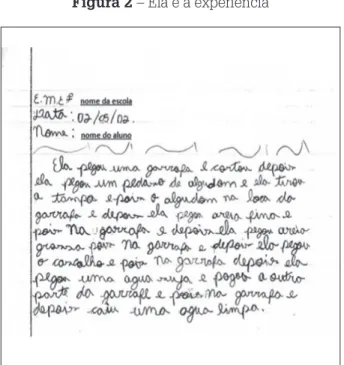 Figura 2 – Ela e a experiência
E.M.E.F nome da escola
Data: 02/05/02.
Nome: nome do aluno
Ela pegou uma garrafa e cortou depois
ela pegou um pedaso de algudom e ela tirou
a tampa e pois o algudom na boca da
garrafa e depois ela pegou areia fina e
pois na garrafa e depois ela pegou areia
grossa pois na garrafa e depois ela pegou
o cascalho e pois na garrafa depois ela
pegou uma agua suja e pogou a outro
parte da garrafe e pois na garrafa e
depois caiu uma agua limpa.